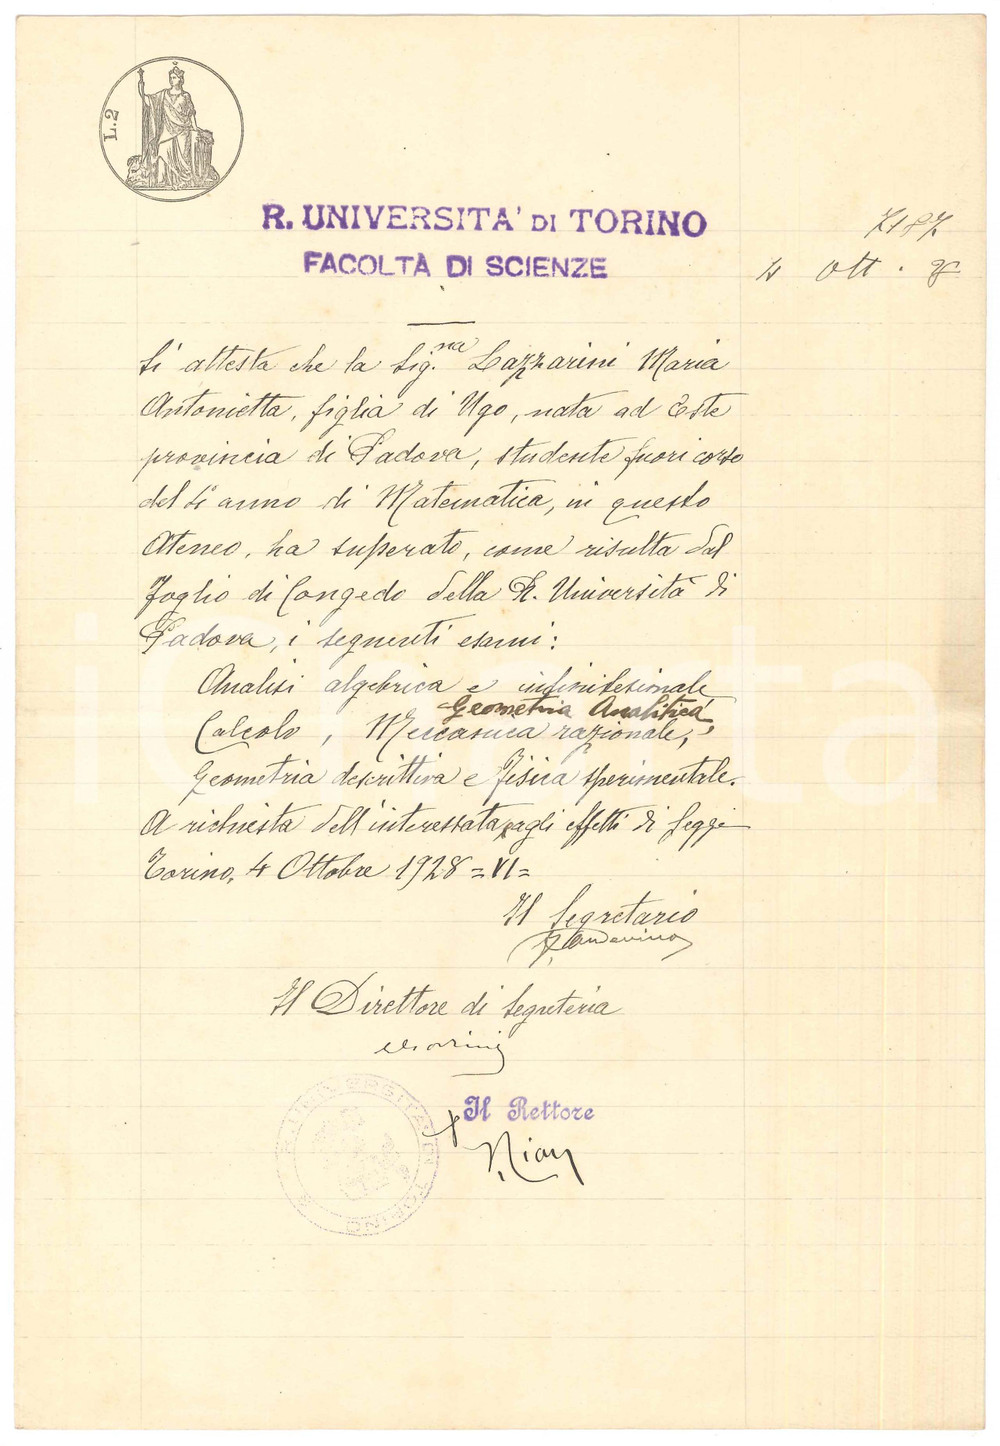 L. 2
R. UNIVERSITA' DI TORINO
FACOLTÀ DI SCIENZE
7187
4 Ott. 
Si attesta che la Sig.na Lazzarini Maria
Antonietta, figlia di Ugo, nata ad Este
provincia di Padova, studente fuori corso
del 4° anno di Matematica, in questo
Ateneo, ha superato, come risulta dal
Foglio di Congedo della R. Università di
Padova, i seguenti esami:
Analisi algebrica e infinitesimale
Geometria Analitica,
Calcolo, Meccanica razionale,
Geometria descrittiva e Fisica sperimentale.
A richiesta dell'interessata agli effetti di Legge
Torino, 4 Ottobre 1928 = VI =
Il Segretario
Il Direttore di Segreteria
Il Rettore
UNIVERSITÀ DI TORINO